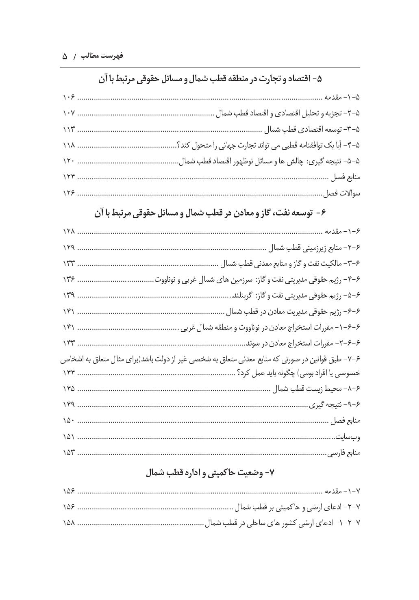 فهرست مطالب / ۵
۵- اقتصاد و تجارت در منطقه قطب شمال و مسائل حقوقی مرتبط با آن
۵-۱- مقدمه ... ۱۰۶
۵-۲- تجزیه و تحلیل اقتصادی و اقتصاد قطب شمال ... ۱۰۷
۵-۳- توسعه اقتصادی قطب شمال ... ۱۱۳
۵-۴- آیا یک توافقنامه قطبی می تواند تجارت جهانی را متحول کند؟ ... ۱۱۸
۵-۵- نتیجه گیری: چالش ها و مسائل نوظهور اقتصاد قطب شمال ... ۱۲۰
منابع فصل ... ۱۲۳
سوالات فصل ... ۱۲۶
۶- توسعه نفت، گاز و معادن در قطب شمال و مسائل حقوقی مرتبط با آن
۶-۱- مقدمه ... ۱۲۸
۶-۲- منابع زیرزمینی قطب شمال ... ۱۲۹
۶-۳- مالکیت نفت و گاز و منابع معدنی قطب شمال ... ۱۳۳
۶-۴- رژیم حقوقی مدیریتی نفت و گاز: سرزمین های شمال غربی و نوناووت ... ۱۳۶
۶-۵- رژیم حقوقی مدیریتی نفت و گاز: گرینلند ... ۱۳۹
۶-۶- رژیم حقوقی مدیریت معادن در قطب شمال ... ۱۴۱
۶-۶-۱- مقررات استخراج معادن در نوناووت و منطقه شمال غربی ... ۱۴۱
۶-۶-۲- مقررات استخراج معادن در سوئد ... ۱۴۳
۶-۷- طبق قوانین در صورتی که منابع معدنی متعلق به شخصی غیر از دولت باشد(برای مثال متعلق به اشخاص
خصوصی یا افراد بومی) چگونه باید عمل کرد؟ ... ۱۴۴
۶-۸- محیط زیست قطب شمال ... ۱۴۵
۶-۹- نتیجه گیری ... ۱۴۹
منابع فصل ... ۱۵۰
وب‌سایت ... ۱۵۱
منابع فارسی ... ۱۵۳
۷- وضعیت حاکمیتی و اداره قطب شمال
۷-۱- مقدمه ... ۱۵۶
۷-۲- ادعای ارضی و حاکمیتی بر قطب شمال ... ۱۵۶
۷-۲-۱- ادعای ارضی کشور های ساحلی در قطب شمال ... ۱۵۸